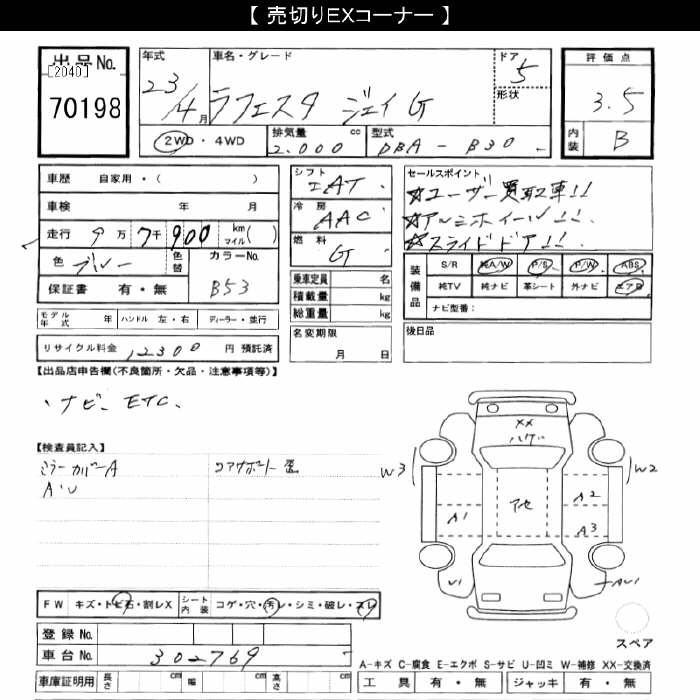 【 売切りEXコーナー 】
出品No.
[2040]
70198
年式 23/4月
車名・グレード ラフェスタ ジェイ G
ドア 5
形状
評価点 3.5
内装 B
2WD・4WD
排気量 2.000 cc
型式 DBA - B30
車歴 自家用・( )
車検 年 月
走行 9万7千900 km マイル( )
色 ブルー
色替
カラーNo. B53
保証書 有・無
モデル年式 年 ハンドル 左・右 ディーラー・並行
リサイクル料金 12300 円 預託済
シフト IAT
冷房 AAC
燃料 G
乗車定員 名
積載量 kg
総重量 kg
名変期限
月 日
セールスポイント
☆ユーザー買取車!!
☆アルミホイール!!
☆スライドドア!!
装備品
S/R 純A/W P/S P/W ABS
純TV 純ナビ 革シート 外ナビ エアB
ナビ型番:
後日品
【出品店申告欄(不良箇所・欠品・注意事項等)】
、ナビ、ETC、
【検査員記入】
ミラーカバーA
A・U
コアサポート
XX
ハゲ
W3
W2
A2
A1
A3
U1
AU1
スペア
FW キズ・トビ石・割レX
シート内装 コゲ・穴・汚レ・シミ・破レ・スレ
登録No.
車台No. 302769
車庫証明用 長さ cm 幅 cm 高さ cm
A-キズ C-腐食 E-エクボ S-サビ U-凹ミ W-補修 XX-交換済
工具 有・無 ジャッキ 有・無